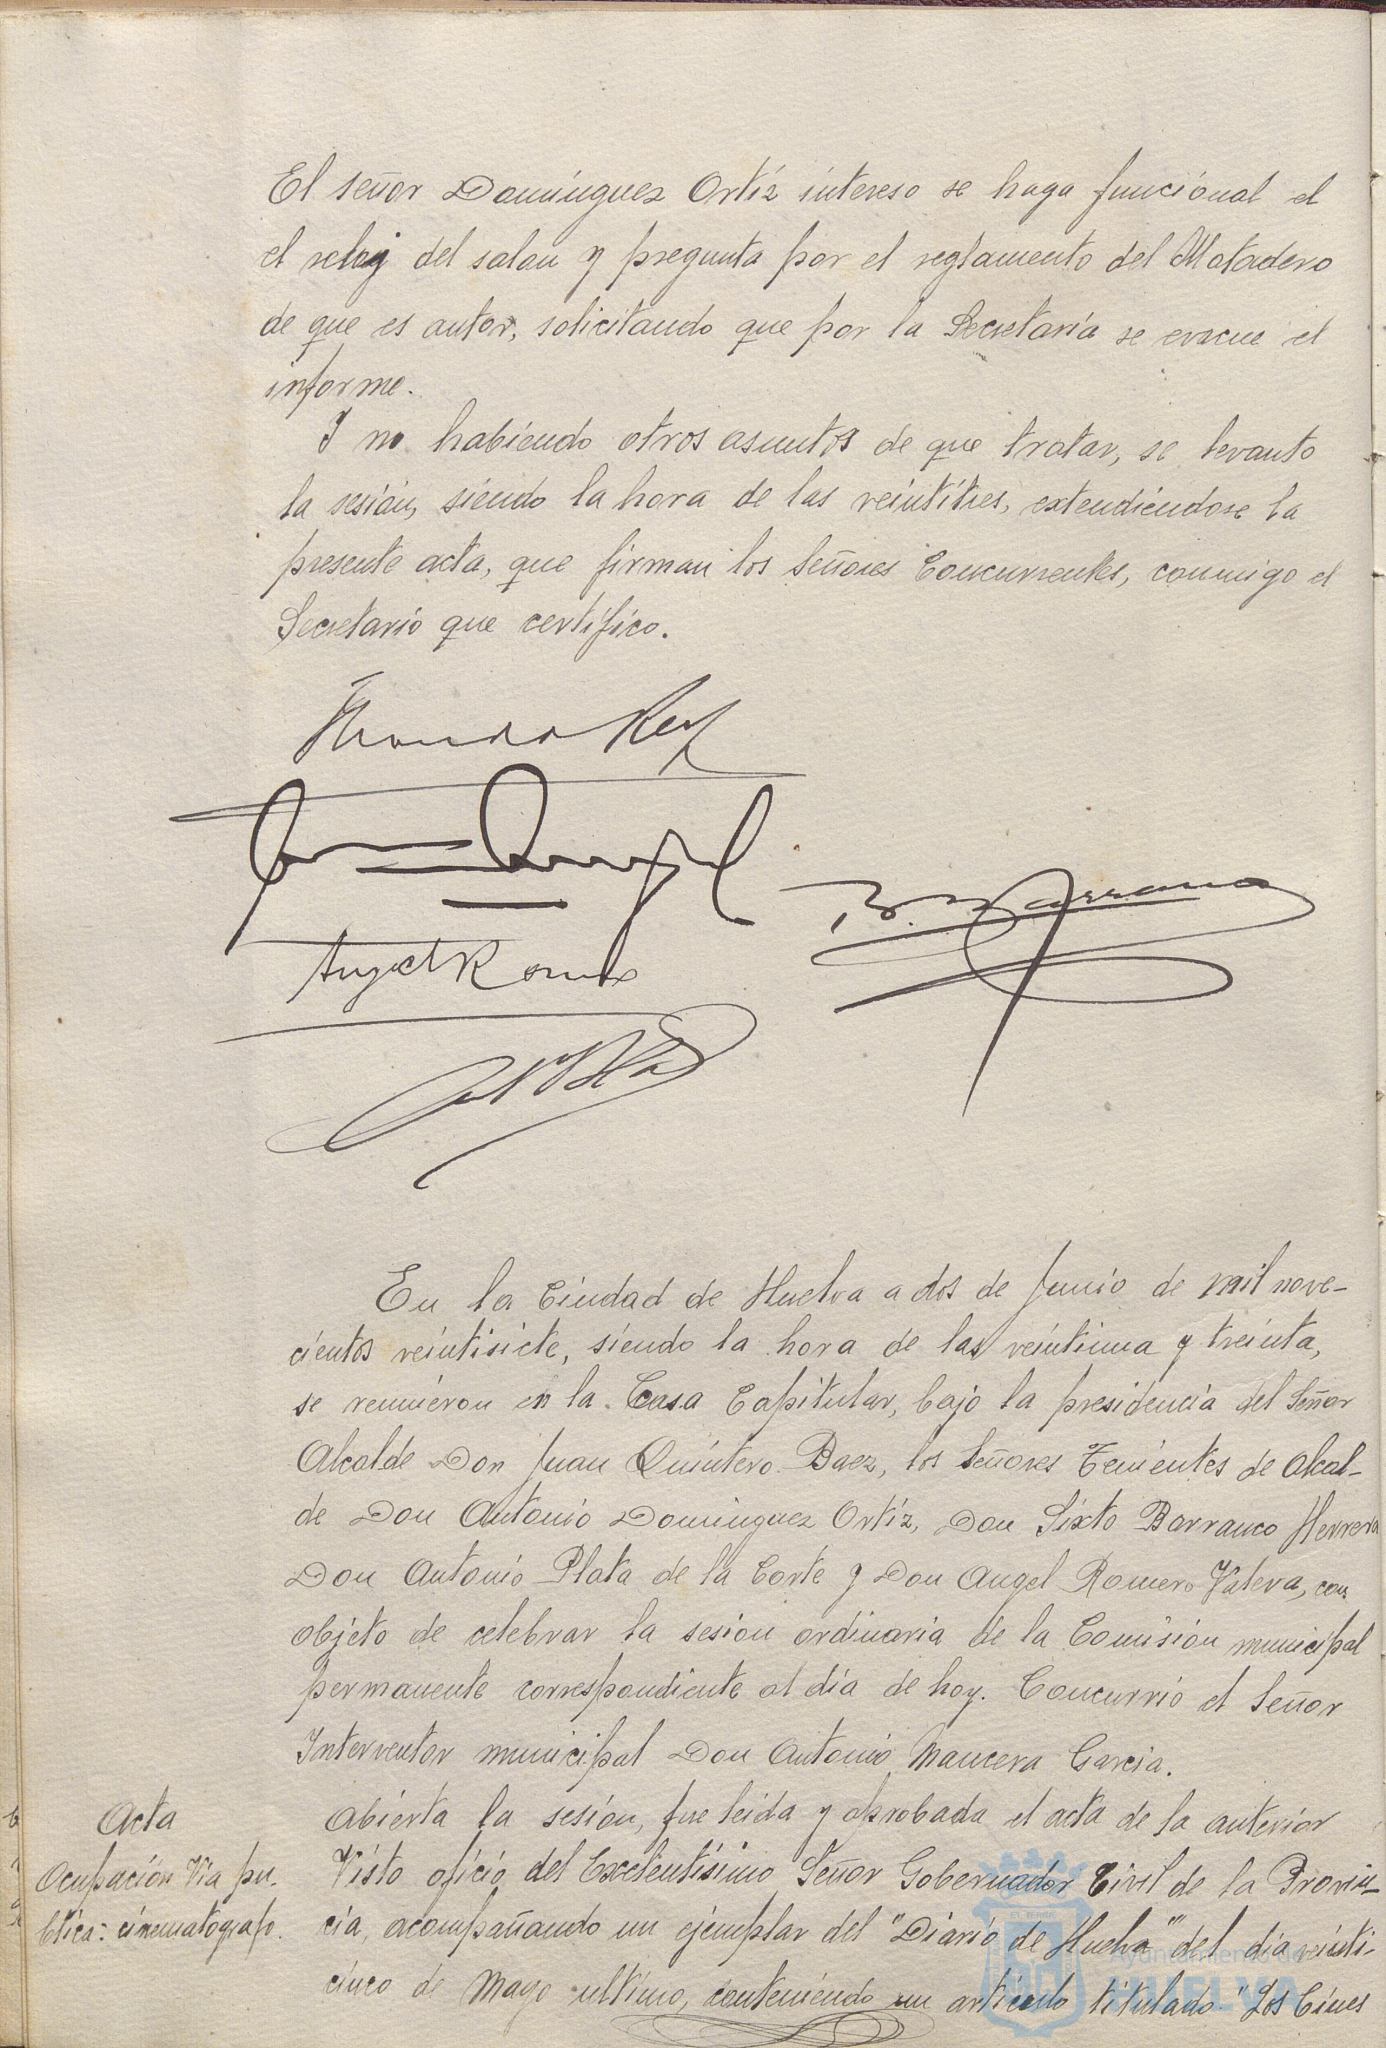 El señor Domínguez Ortíz intereso se haga funcional el
el reloj del salon y pregunta por el reglamento del Matadero
de que es autor, solicitando que por la Secretaría se evacue el
informe.
Y no habiendo otros asuntos de que tratar, se levanto
la sesión, siendo la hora de las veintitres, extendiéndose la
presente acta, que firman los Señores Concurrentes, conmigo el
Secretario que certífico.
Angel Romero
B. Barranco
En la Ciudad de Huelva a dos de Junio de mil nove-
cientos veintisiete, siendo la hora de las veintiuna y treinta,
se reunieron en la Casa Capitular, bajo la presidencia del Señor
Alcalde Don Juan Quintero Baez, los Señores Tenientes de Alcal-
de Don Antonio Dominguez Ortíz, Don Sixto Barranco Herrera
Don Antonio Plata de la Corte y Don Angel Romero Valera, con
objeto de celebrar la sesion ordinaria de la Comision municipal
permanente correspondiente al día de hoy. Concurrió el Señor
Interventor municipal Don Antonio Mancera Garcia.
Acta
Abierta la sesión, fue leida y aprobada el acta de la anterior
Ocupación Via pu-
Visto oficio del Excelentísimo Señor Gobernador Civil de la Provin-
blica: cinematografo.
cia, acompañando un ejemplar del "Diario de Huelva" del día veinti-
cinco de Mayo ultimo, conteniendo un artículo titulado "Los Cines
Ayuntamiento de
HUELVA